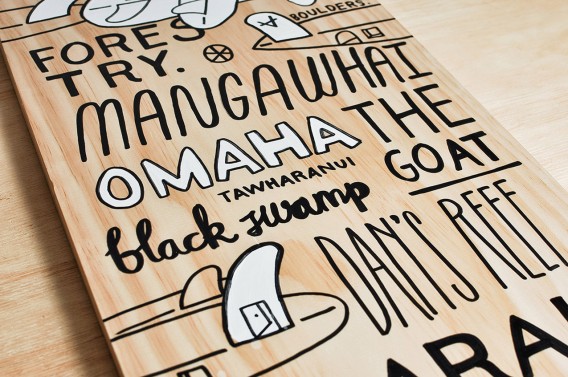 BOULDERS.
FORES
TRY.
MANGAWHAI
THE
OMAHA
GOAT
TAWHARANUI
black swamp
DAN'S REEF